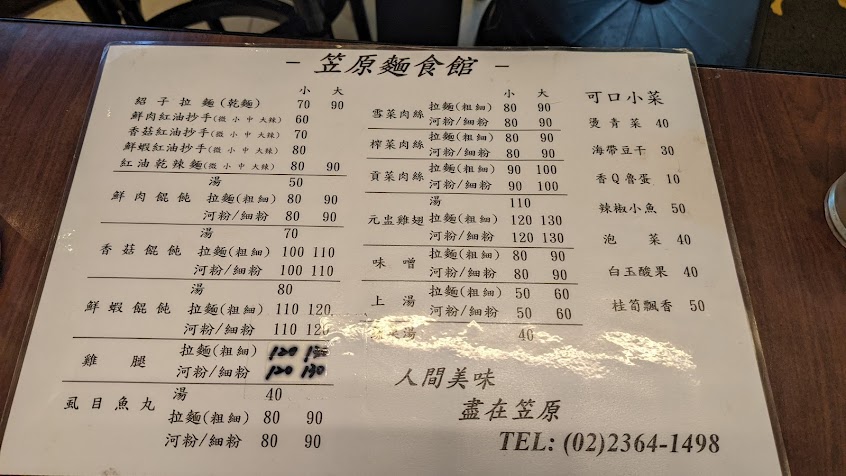 - 笠原麵食館 -
小 大
紹子拉麵(乾麵) 70 90
鮮肉紅油抄手(微小中大辣) 60
香菇紅油抄手(微小中大辣) 70
鮮蝦紅油抄手(微小中大辣) 80
紅油乾辣麵(微小中大辣) 80 90
湯 50
鮮肉餛飩 拉麵(粗細) 80 90
河粉/細粉 80 90
湯 70
香菇餛飩 拉麵(粗細) 100 110
河粉/細粉 100 110
湯 80
鮮蝦餛飩 拉麵(粗細) 110 120
河粉/細粉 110 120
雞腿 拉麵(粗細) 120
河粉/細粉 120 130
虱目魚丸 湯 40
拉麵(粗細) 80 90
河粉/細粉 80 90
小 大
雪菜肉絲 拉麵(粗細) 80 90
河粉/細粉 80 90
榨菜肉絲 拉麵(粗細) 80 90
河粉/細粉 80 90
貢菜肉絲 拉麵(粗細) 90 100
河粉/細粉 90 100
湯 110
元盅雞翅 拉麵(粗細) 120 130
河粉/細粉 120 130
味噌 拉麵(粗細) 80 90
河粉/細粉 80 90
上湯 拉麵(粗細) 50 60
河粉/細粉 50 60
湯 40
可口小菜
燙青菜 40
海帶豆干 30
香Q魯蛋 10
辣椒小魚 50
泡菜 40
白玉酸果 40
桂筍飄香 50
人間美味
盡在笠原
TEL: (02)2364-1498